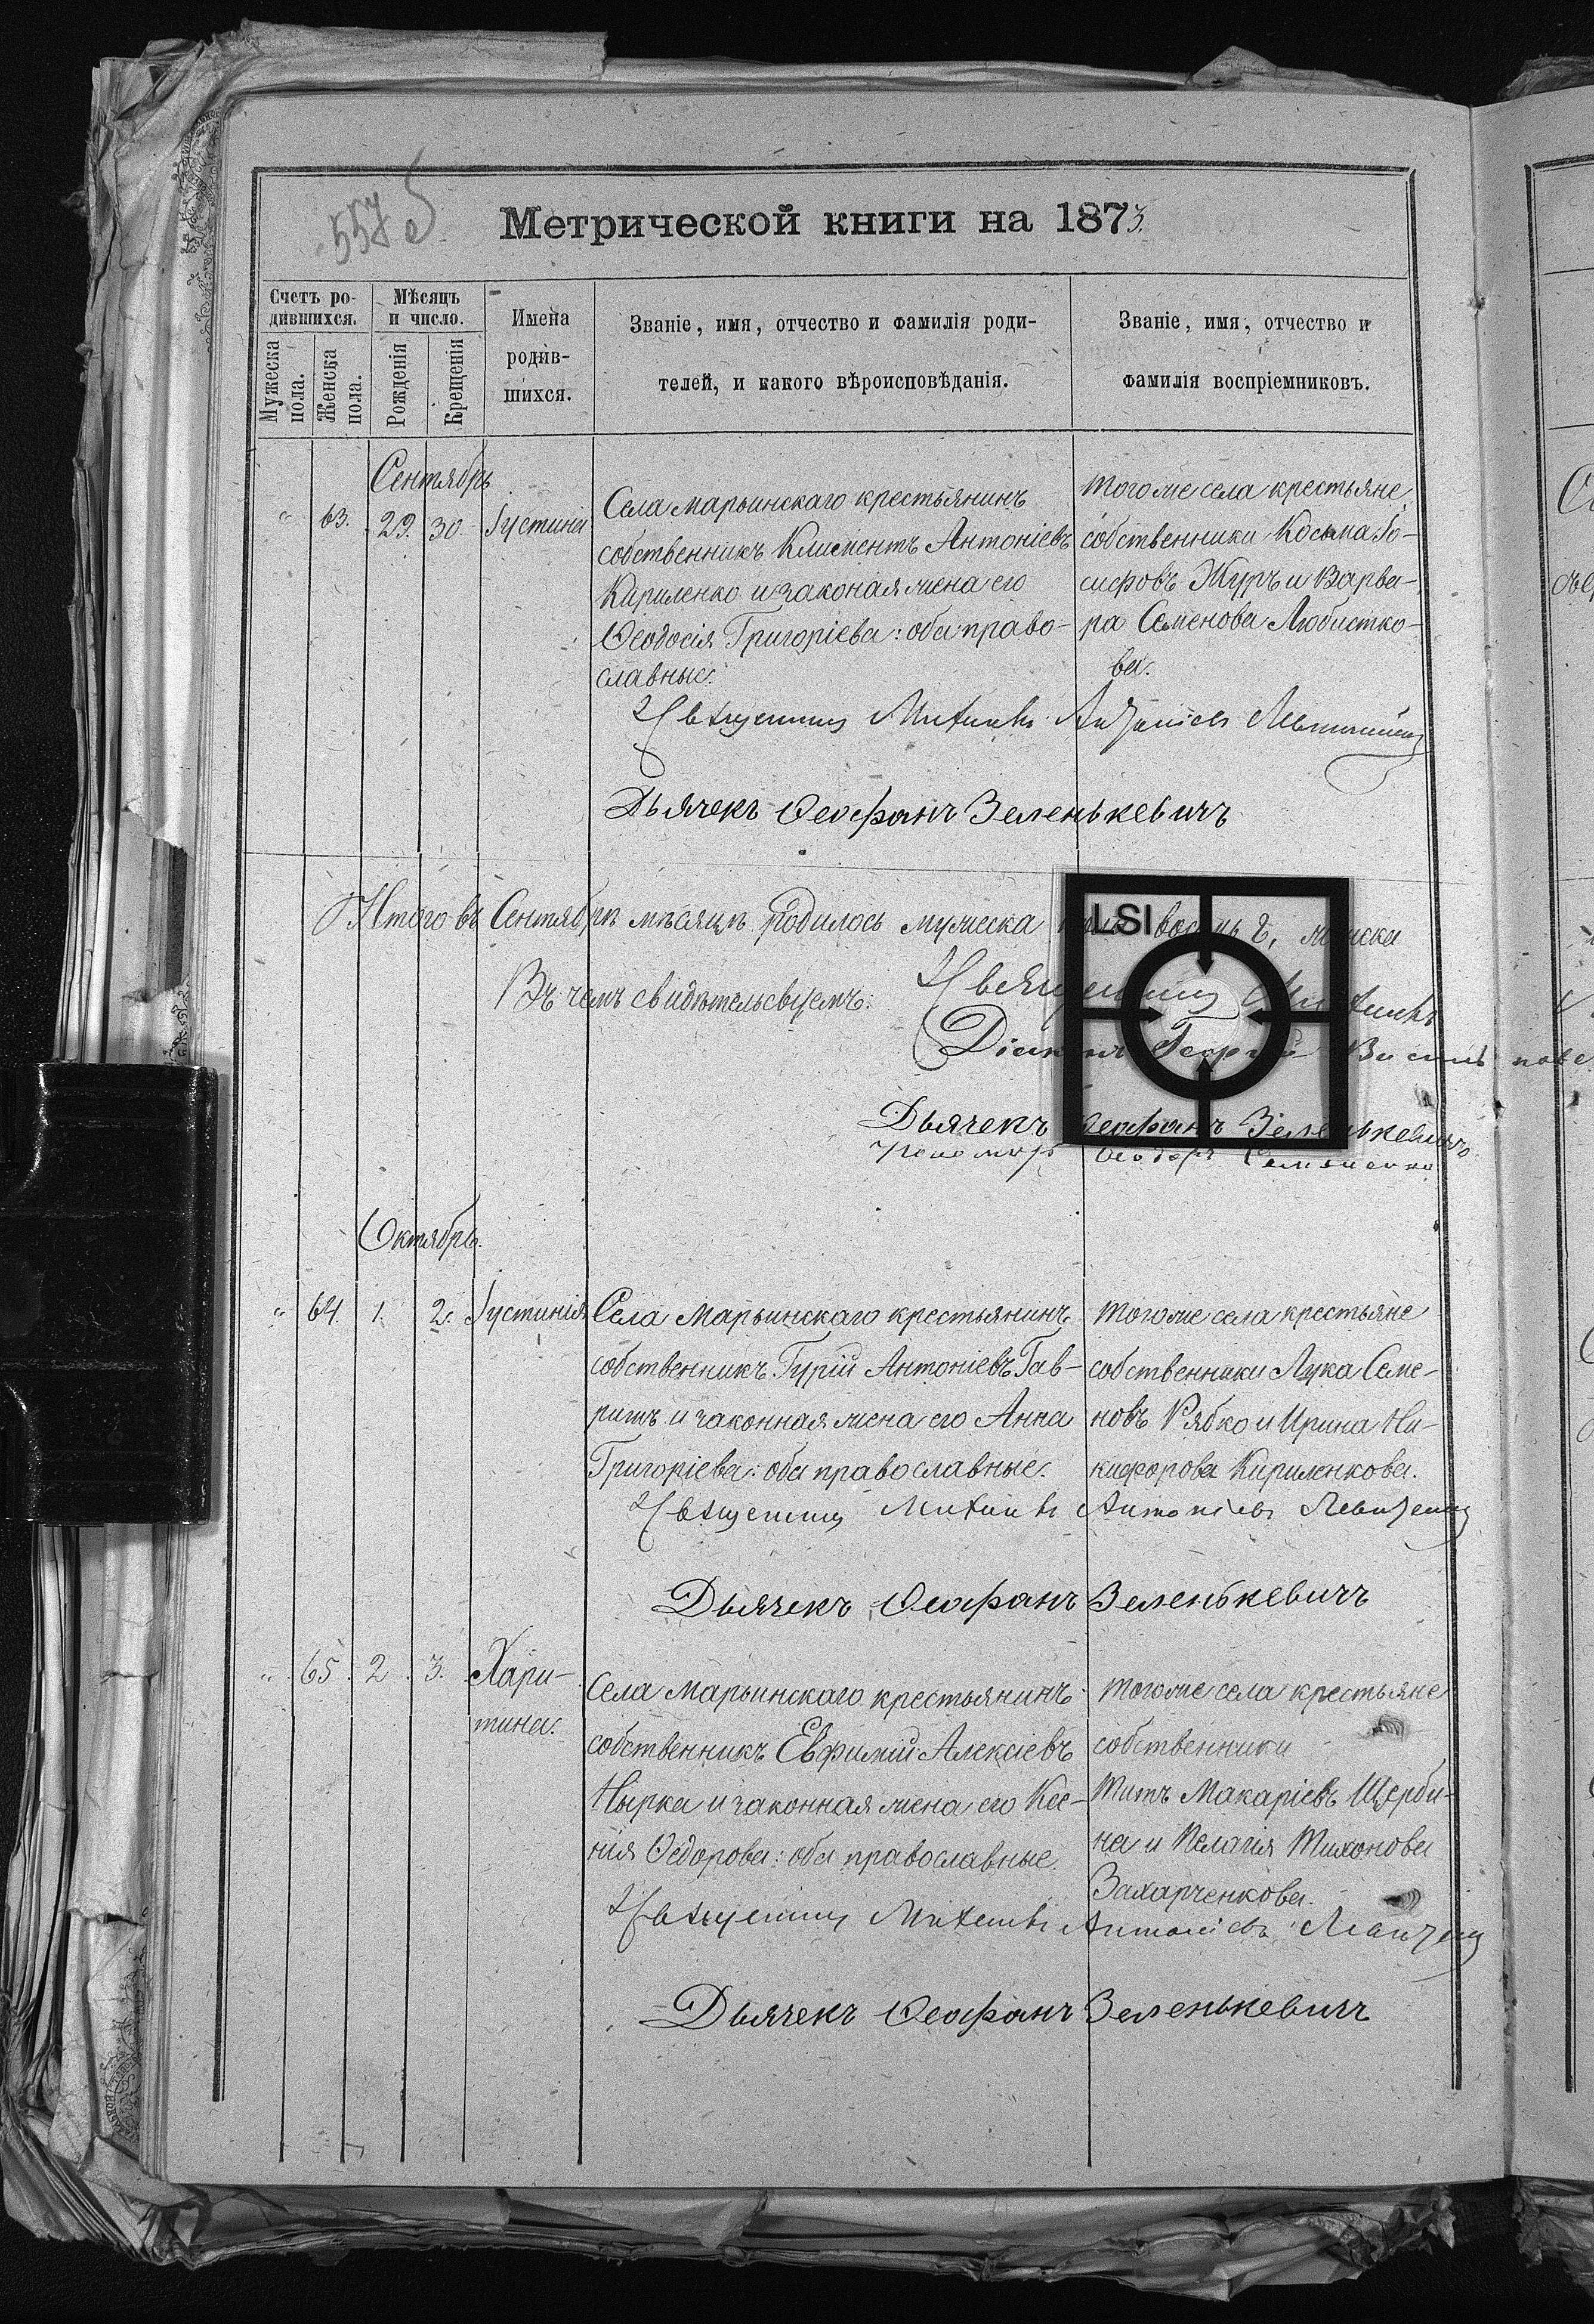 557
Метрической книги на 1873.
Счетъ ро-
дившихся.
Мѣсяцъ
и число.
Мужеска
пола.
Женска
пола.
Рожденія
Крещенія
Имена
родив-
шихся.
Званіе, имя, отчество и фамилія роди-
телей, и какого вѣроисповѣданія.
Званіе, имя, отчество и
фамилія воспріемниковъ.
Сентябрь
" 63. 29. 30. Іустинія
Села Марьинскаго крестьянинъ
собственникъ Климентъ Антоніевъ
Кириленко и законая жена его
Ѳеодосія Григоріева: оба право-
славные.
Тогоже села крестьяне
собственники Косьма Іо-
сифовъ Журъ и Варва-
ра Семенова Любистко-
ва.
Священникъ Антоніевъ
Дьячекъ Ѳеофанъ Зеленькевичъ
Итого въ Сентябрѣ мѣсяцѣ родилось мужеска восемь 8, женска
LSI
Въ чемъ свидѣтельствуемъ:
Священникъ
Діаконъ Георгій
Дьячекъ Ѳеофанъ Зеленькевичъ
Пономарь Ѳеодоръ
Октябрь.
" 64. 1. 2. Іустинія
Села Марьинскаго крестьянинъ
собственникъ Гурій Антоніевъ Гав-
ришъ и законная жена его Анна
Григоріева: оба православные.
Тогоже села крестьяне
собственники Лука Семе-
новъ Рябко и Ирина Ни-
кифорова Кириленкова.
Священникъ Антоніевъ
Дьячекъ Ѳеофанъ Зеленькевичъ
" 65. 2. 3. Хари-
тина.
Села Марьинскаго крестьянинъ
собственникъ Евфимій Алексіевъ
Нырка и законная жена его Ксе-
нія Ѳедорова: оба православные.
Тогоже села крестьяне
собственники
Титъ Макаріевъ Щерби-
на и Пелагія Тихонова
Захарченкова.
Священникъ Антоніевъ
Дьячекъ Ѳеофанъ Зеленькевичъ